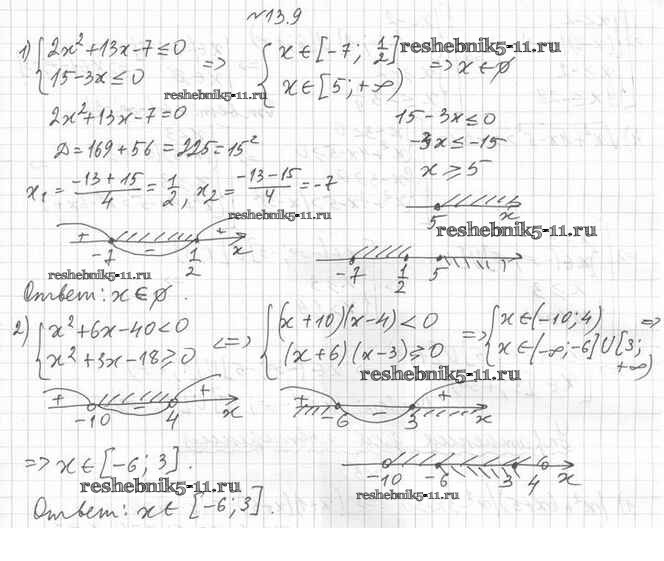 №13.9
1) { 2x²+13x-7≤0
15-3x≤0 => { x∈[-7; 1/2]
x∈[5;+∞) => x∈∅
reshebnik5-11.ru
reshebnik5-11.ru
2x²+13x-7=0
15-3x≤0
D=169+56=225=15²
-3x≤-15
x₁ = (-13+15)/4 = 1/2, x₂ = (-13-15)/4 = -7
x≥5
reshebnik5-11.ru
5 x
reshebnik5-11.ru
+ - +
-7 1/2 x
-7 1/2 5
reshebnik5-11.ru
Ответ: x∈∅.
2) { x²+6x-40<0
x²+3x-18≥0 <=> { (x+10)(x-4)<0
(x+6)(x-3)≥0 => { x∈(-10;4)
x∈(-∞;-6]∪[3;+∞) =>
reshebnik5-11.ru
+ - +
-10 4 x
+ - +
-6 3 x
=> x∈[-6;3].
-10 -6 3 4 x
reshebnik5-11.ru
reshebnik5-11.ru
Ответ: x∈[-6;3].